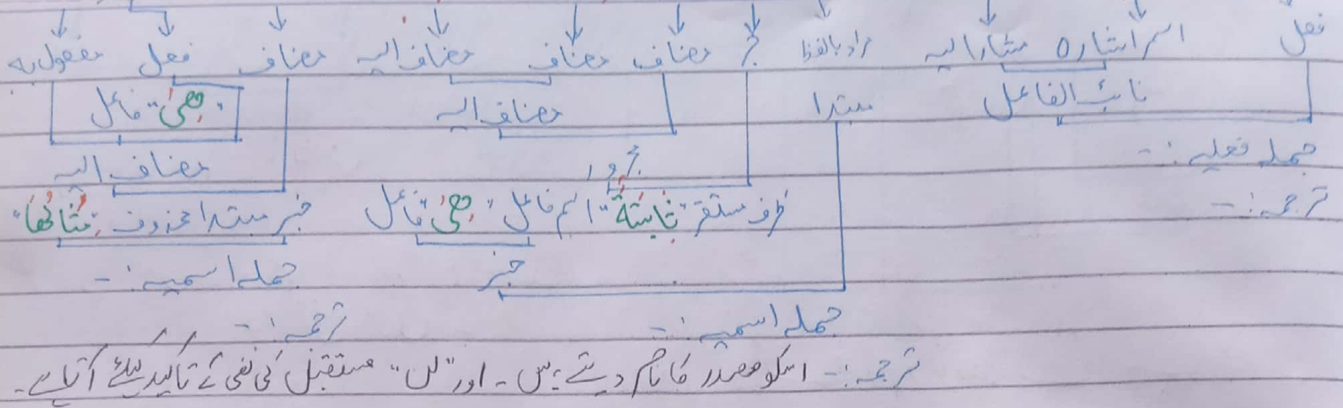 فعل اسم اشارہ مشار الیہ مراد بالفظ جر مضاف مضاف مضاف الیہ مضاف فعل مفعول بہ
نائب الفاعل مبتدا مضاف الیہ "ھی" فاعل
جملہ فعلیہ :- مجرور مضاف الیہ
ترجمہ :- ظرف مستقر "ثابتةٌ" اسم فاعل "ھی" فاعل خبر مبتدا محذوف "مثالھا"
خبر جملہ اسمیہ :-
جملہ اسمیہ :- ترجمہ :-
ترجمہ :- اسکو مصدر کا نام دیتے ہیں - اور "لن" مستقبل کی نفی کے تاکید کیلئے آتا ہے -